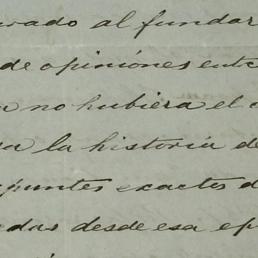 vado al fundar
de opiniónes entre
no hubiera el
la historia de
apuntes exactos d
das desde esa ep